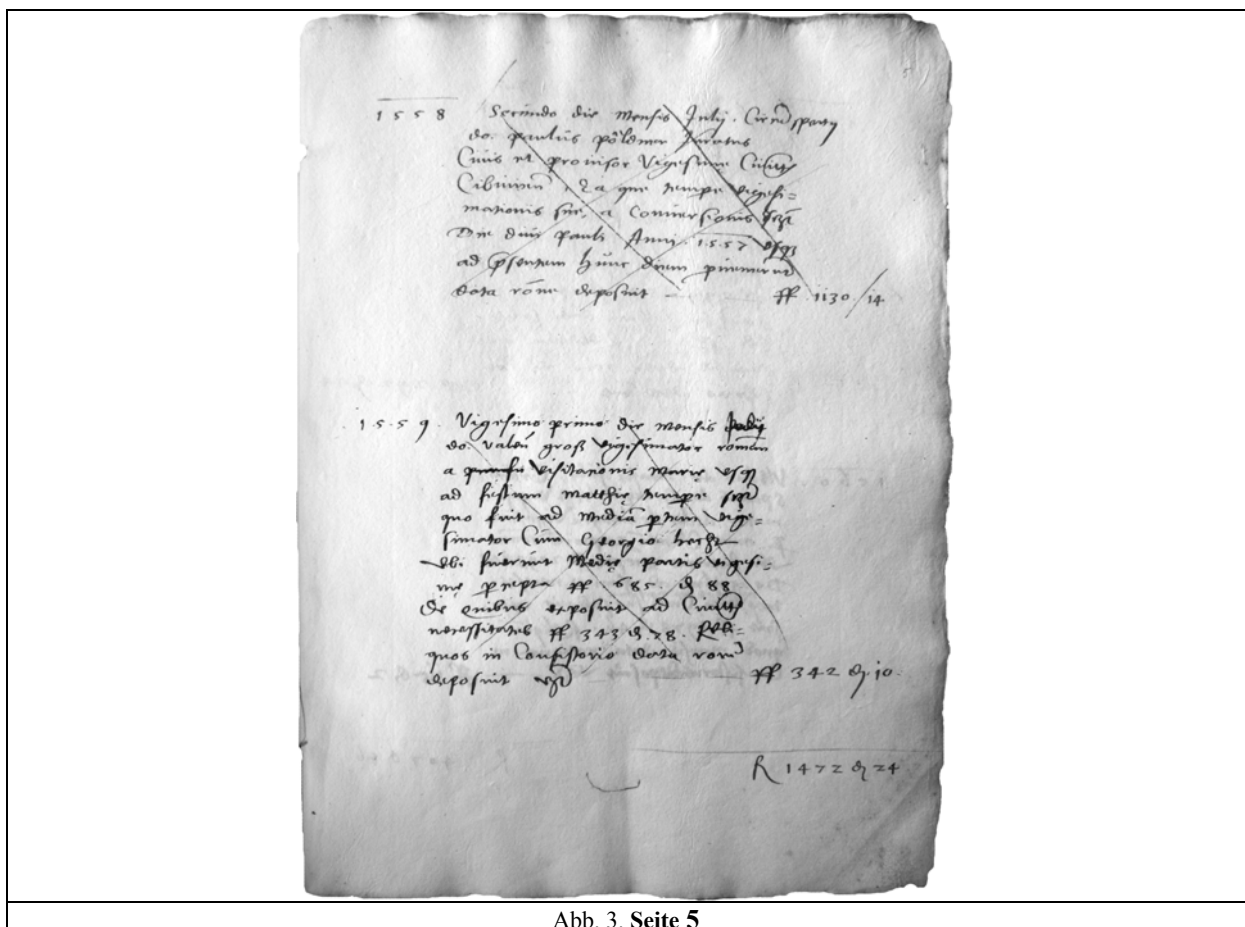 5
1558 Secundo die Mensis Julij
do. paulus pöldner Juratus
Ciuis et prouisor Vigesime Ciuitt
Cibinien que tempe vigesi=
mationis sue, a Conuersionis
Die diui Pauli Anni. 1557 vsqz
ad pñsentem hunc diem
data rone deposuit ff. 1130/14
1559. Vigesimo primo die mensis
do. Valen groß vigesimator
a visitationis Marie vsqz
ad festum Matthie tempe
quo fuit ad Mediã ptem vige=
simator Cum Georgio hecht
Vbi fuerunt Medie partis vigesi=
me pcepta ff. 685. d 88
De quibus deposuit ad Ciuitt
necessitates ff 343 d. 78. Reli=
quos in Consistorio data rone
deposuit ff 342 d. 10.
R 1472 d 24
Abb. 3. Seite 5